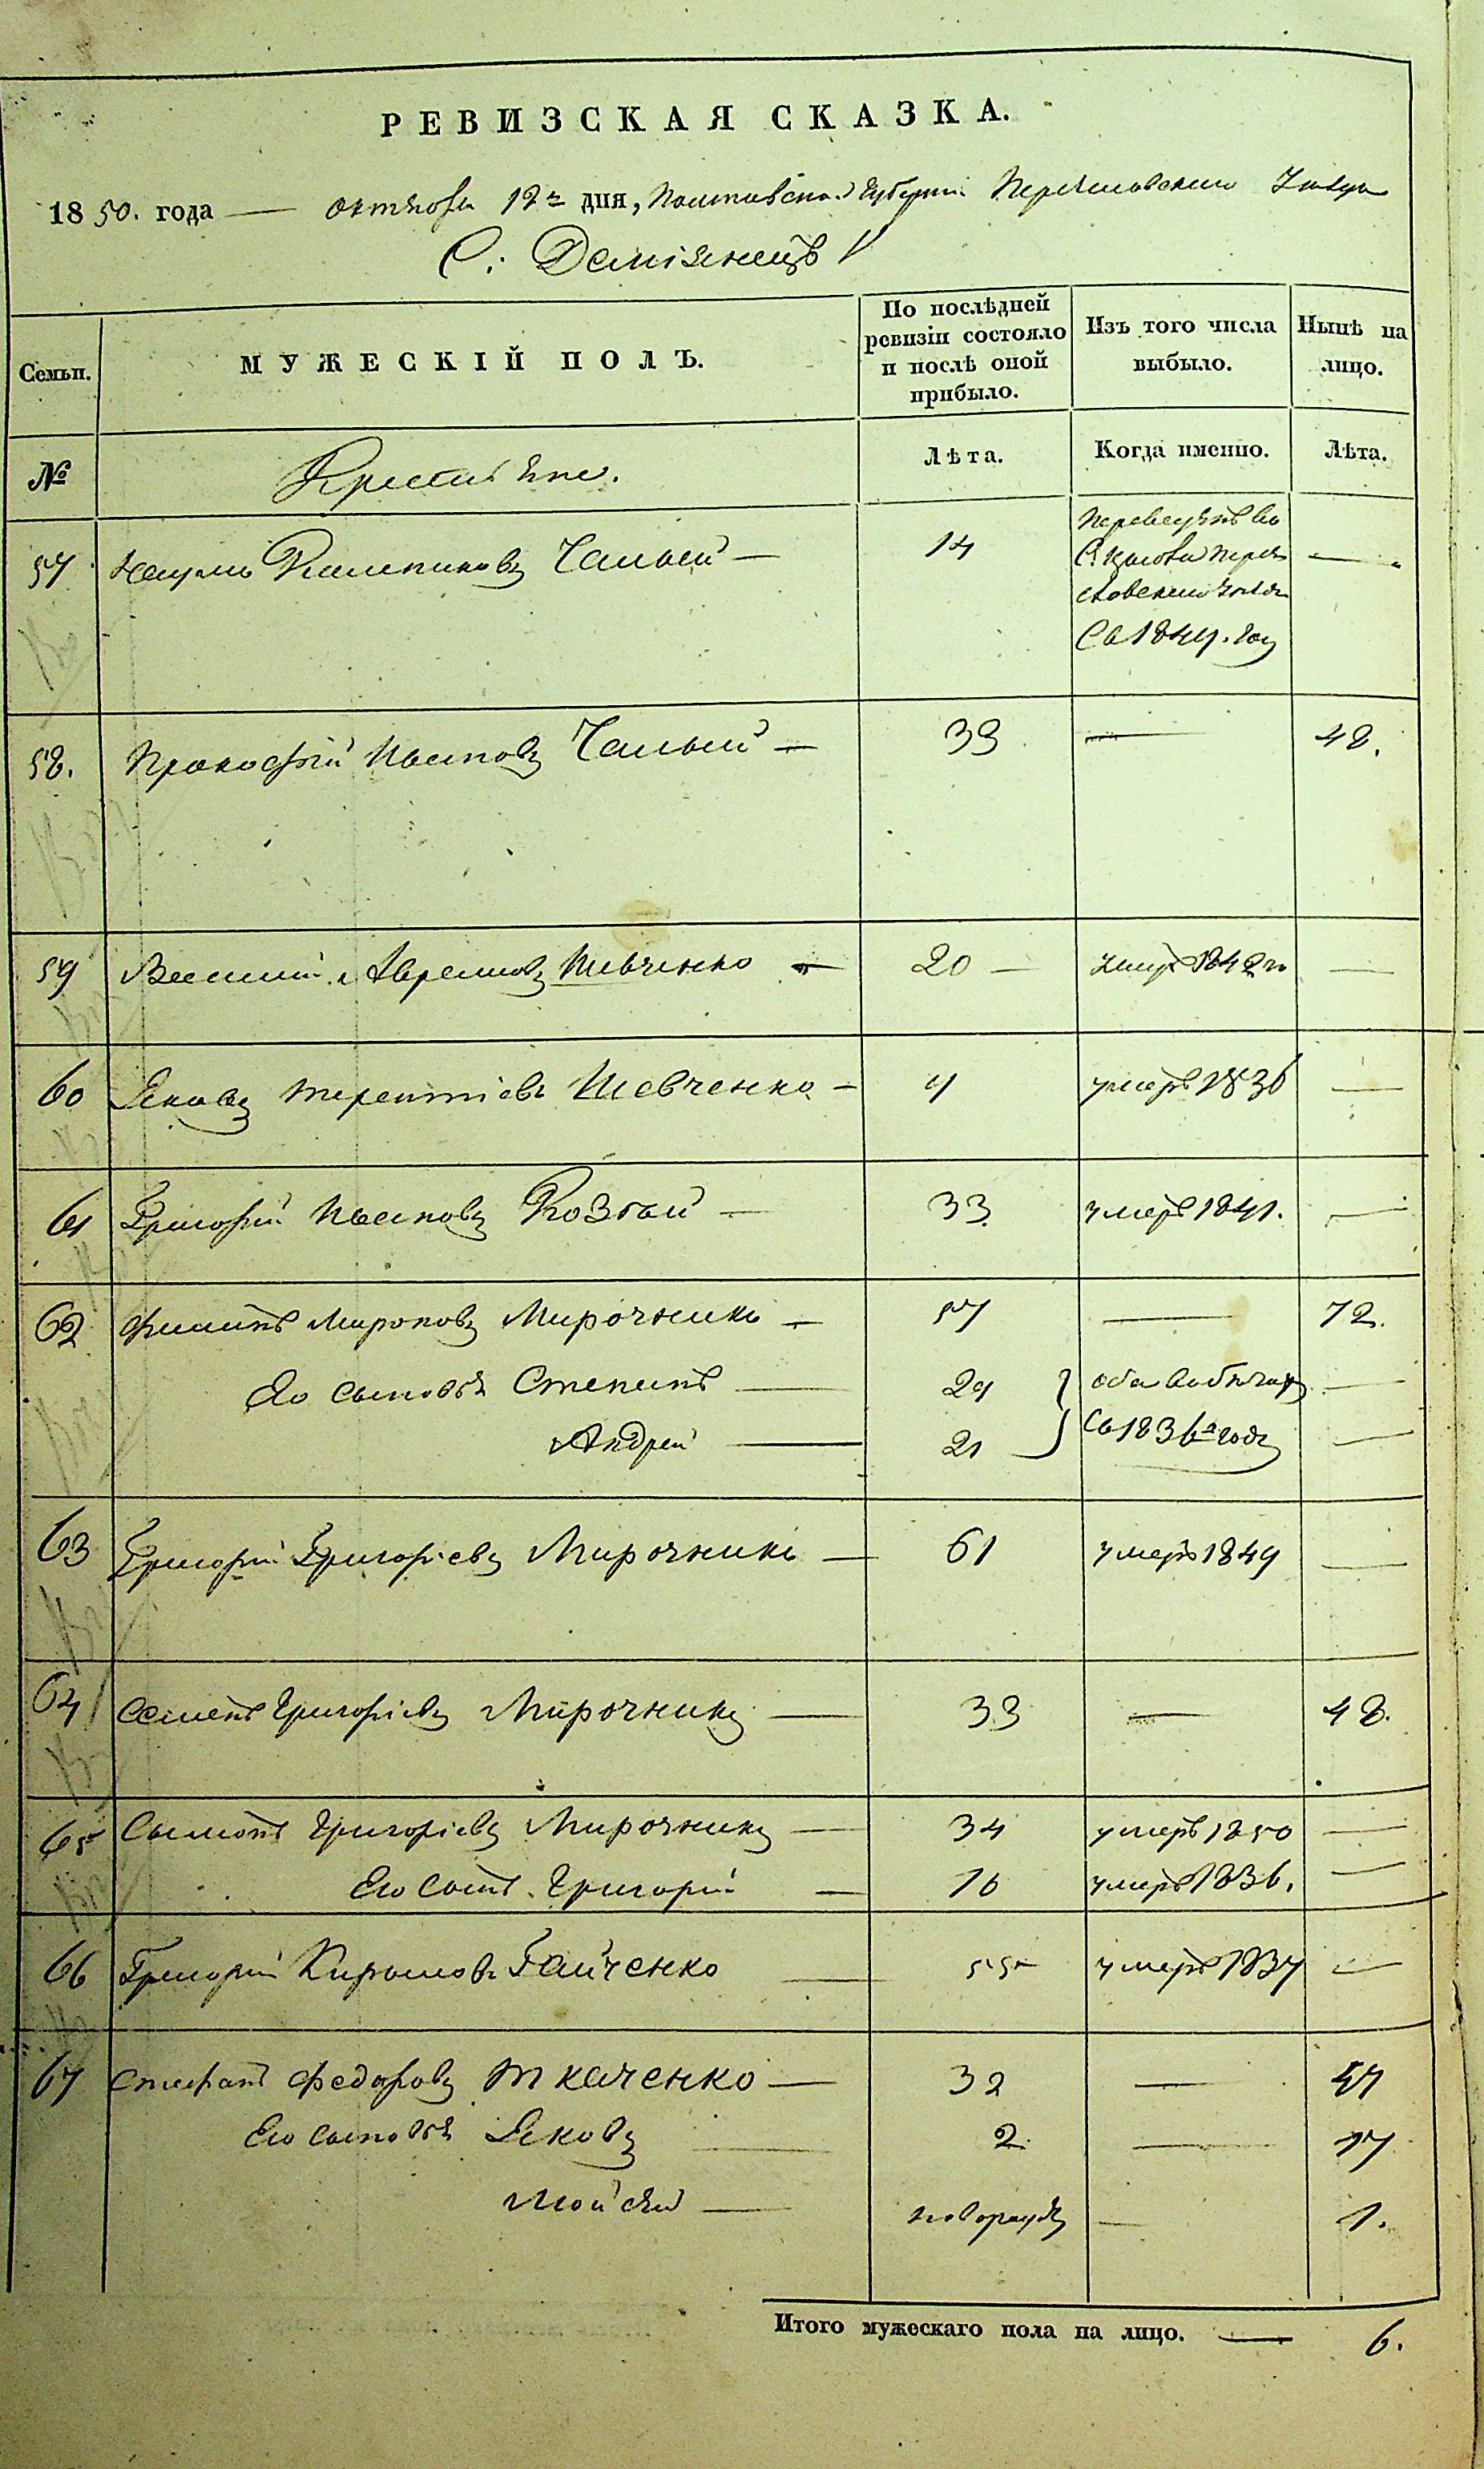 РЕВИЗСКАЯ СКАЗКА.
1850. года — октября 12го дня, Полтавской Губерніи Переяславскаго Уезда
С: Демьянецъ
Семьи. МУЖЕСКІЙ ПОЛЪ. По послѣдней ревизіи состояло и послѣ оной прибыло. Изъ того числа выбыло. Нынѣ на лицо.
№ Крестьяне. Лѣта. Когда именно. Лѣта.
57 Наумъ Чалый — 14 переведенъ во
С: перея
словскаго уезда
Съ 184 году —
58. Прокофій Павловъ Чалый — 33 — 48.
59 Василий Авраамовъ Шевченко — 20 — умеръ 1842 го —
60 Яковъ терентіевъ Шевченко — 4 умеръ 1836 —
61 Григорій Павловъ Козлай — 33 умеръ 1841. —
62 Филипъ Мироновъ Мирочникъ — 57 — 72.
Его сыновья Степанъ — 29 } оба въ бегахъ —
Андрей — 21 Съ 1836го года —
63 Григорій Григоріевъ Мирочникъ — 61 умеръ 1849 —
64 Семенъ Григоріевъ Мирочникъ — 33 — 48.
65 Сымонъ Григоріевъ Мирочникъ — 34 умеръ 1850 —
Его Сынъ Григорій — 16 умеръ 1836. —
66 Григорій Кириловъ Гайченко — 55 умеръ 1837 —
67 Стефанъ Федоровъ ткаченко — 32 — 47
Его сыновья Яковъ — 2. — 17
Мойсей — новорожд — 1.
Итого мужескаго пола на лицо. — 6.